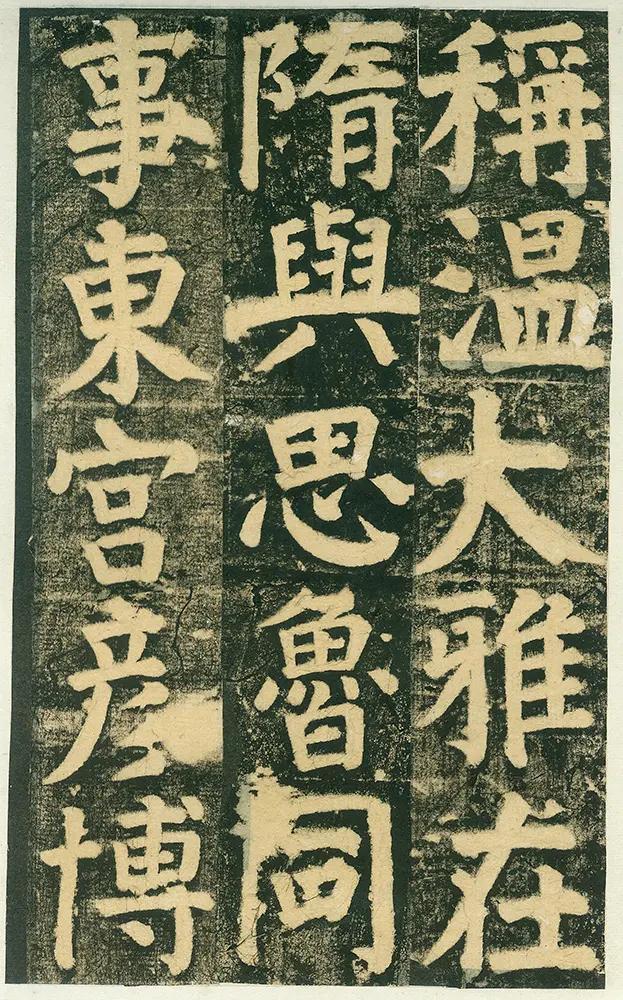 稱温大雅在
隋與思魯同
事東宫彦博